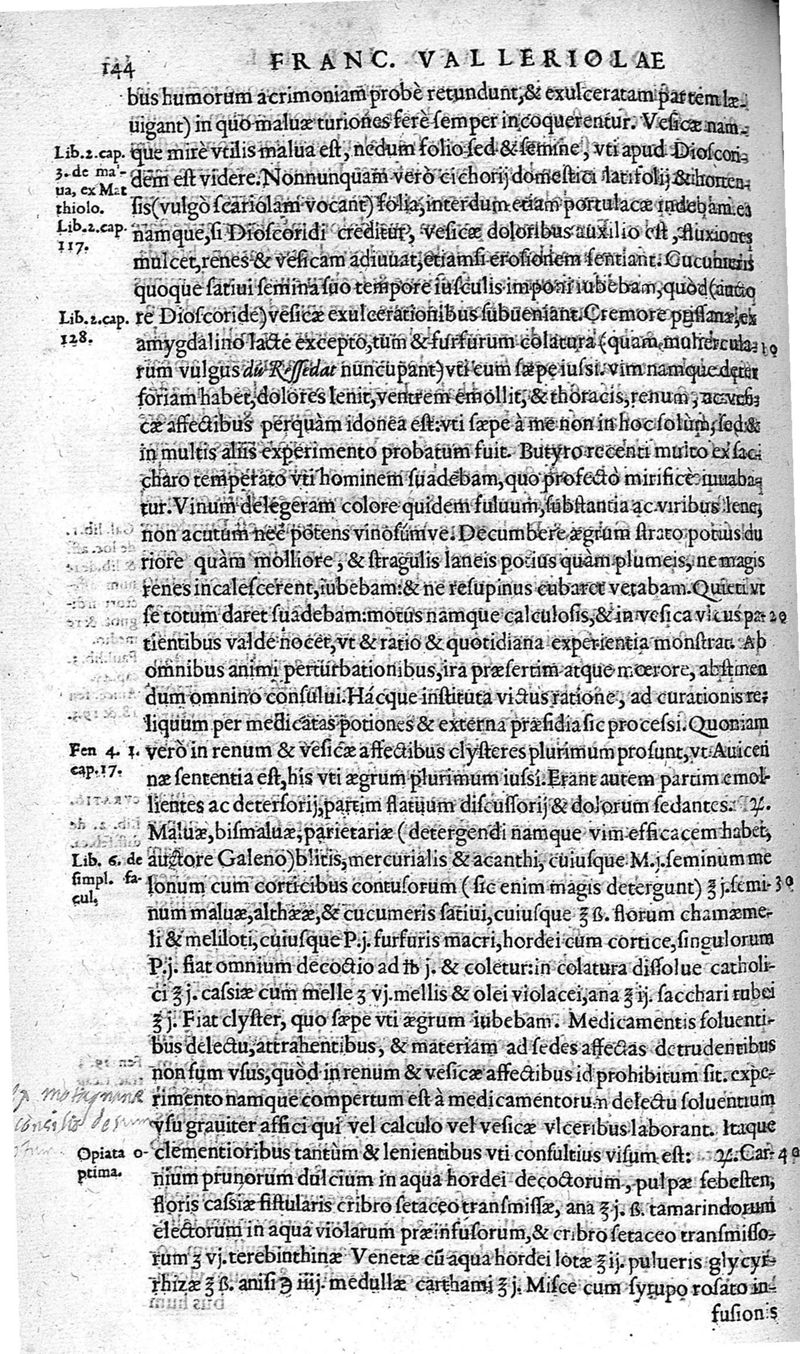 144 FRANC. VALLERIOLAE
bus humorum acrimoniam probè retundunt, & exulceratam partem læ-
uigant) in quo maluæ turiones ferè semper incoquerentur. Vesicæ nam-
Lib.2.cap. que mirè vtilis malua est, nedum folio sed & semine, vti apud Dioscori-
3. de mal- dem est videre. Nonnunquam verò cichorij domestici latifolij & horten-
ua, ex Mat
thiolo. sis (vulgò scariolam vocant) folia, interdum etiam portulacæ indebam: ea
Lib.2.cap. namque, si Dioscoridi creditur, vesicæ doloribus auxilio est, fluxiones
117. mulcet, renes & vesicam adiuuat, etiamsi erosionem sentiant. Cucumeris
quoque satiui semina suo tempore iusculis imponi iubebam, quòd (aucto
Lib.2.cap. re Dioscoride) vesicæ exulcerationibus subueniant. Cremore ptissanæ, ex
128. amygdalino lacte excepto, tum & furfurum colatura (quam muliercula- 10
rum vulgus du Ressedat nuncupant) vti eum sæpe iussi. vim namque deter
soriam habet, dolores lenit, ventrem emollit, & thoracis, renum, ac vesi-
cæ affectibus perquàm idonea est: vti sæpe à me non in hoc solùm, sed &
in multis aliis experimento probatum fuit. Butyro recenti multo ex sac-
charo temperato vti hominem suadebam, quo profectò mirificè iuuaba-
tur. Vinum delegeram colore quidem fuluum, substantia ac viribus lene,
non acutum nec potens vinosúmve. Decumbere ægrum strato potius du
riore quàm molliore, & stragulis laneis potius quàm plumeis, ne magis
renes incalescerent, iubebam: & ne resupinus cubaret vetabam. Quieti vt
se totum daret suadebam: motus namque calculosis, & in vesica vlcus pa- 20
tientibus valde nocet, vt & ratio & quotidiana experientia monstrat. Ab
omnibus animi perturbationibus, ira præsertim atque mœrore, abstinen
dum omnino consului. Hácque instituta victus ratione, ad curationis re-
liquum per medicatas potiones & externa præsidia sic processi. Quoniam
Fen 4. 1. verò in renum & vesicæ affectibus clysteres plurimum prosunt, vt Auicen
cap.17. næ sententia est, his vti ægrum plurimum iussi. Erant autem partim emol-
lientes ac detersorij, partim flatuum discussorij & dolorum sedantes. ℞.
Maluæ, bismaluæ, parietariæ (detergendi namque vim efficacem habet,
Lib. 6. de auctore Galeno) blitis, mercurialis & acanthi, cuiusque M.j. seminum me
simpl. fa- lonum cum corticibus contusorum (sic enim magis detergunt) ℥ j. semi- 30
cul. num maluæ, althææ, & cucumeris satiui, cuiusque ℥ ß. florum chamæme-
li & meliloti, cuiusque P.j. furfuris macri, hordei cum cortice, singulorum
P.j. fiat omnium decoctio ad ℔ j. & coletur: in colatura dissolue catholi-
ci ℥ j. cassiæ cum melle ʒ vj. mellis & olei violacei, ana ℥ ij. sacchari rubei
℥ j. Fiat clyster, quo sæpe vti ægrum iubebam. Medicamentis soluenti-
bus delectu, attrahentibus, & materiam ad sedes affectas detrudentibus
non sum vsus, quòd in renum & vesicæ affectibus id prohibitum sit. expe-
rimento namque compertum est à medicamentorum delectu soluentium
vsu grauiter affici qui vel calculo vel vesicæ vlceribus laborant. Itaque
Opiata o- clementioribus tantùm & lenientibus vti consultius visum est: ℞. Car- 40
ptima. nium prunorum dulcium in aqua hordei decoctorum, pulpæ sebesten,
floris cassiæ fistularis cribro setaceo transmissæ, ana ℥ j. ß. tamarindorum
electorum in aqua violarum præinfusorum, & cribro setaceo transmisso-
rum ʒ vj. terebinthinæ Venetæ cũ aqua hordei lotæ ℥ ij. pulueris glycyr-
rhizæ ℥ ß. anisi ℈ iiij. medullæ carthami ℥ j. Misce cum syrupo rosato in-
fusionis